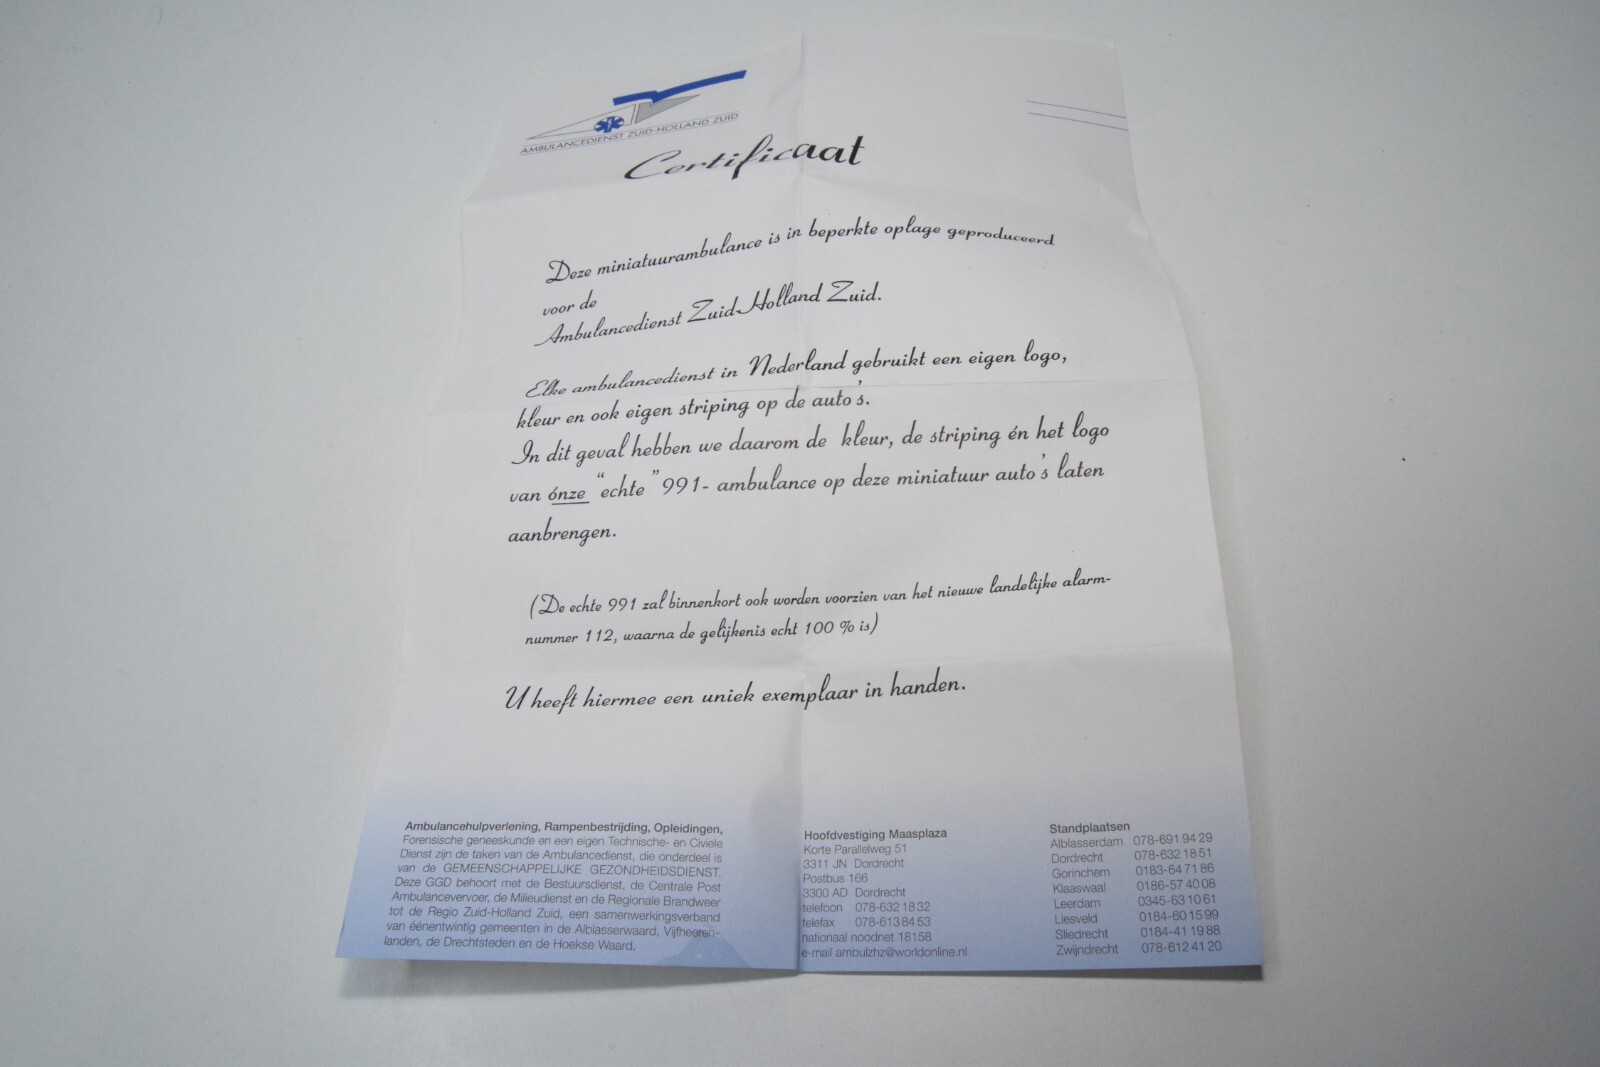 AMBULANCEDIENST ZUID-HOLLAND ZUID
Certificaat
Deze miniatuurambulance is in beperkte oplage geproduceerd
voor de
Ambulancedienst Zuid-Holland Zuid.
Elke ambulancedienst in Nederland gebruikt een eigen logo,
kleur en ook eigen striping op de auto's.
In dit geval hebben we daarom de kleur, de striping én het logo
van ónze "echte" 991- ambulance op deze miniatuur auto's laten
aanbrengen.
(De echte 991 zal binnenkort ook worden voorzien van het nieuwe landelijke alarm-
nummer 112, waarna de gelijkenis echt 100 % is)
U heeft hiermee een uniek exemplaar in handen.
Ambulancehulpverlening, Rampenbestrijding, Opleidingen,
Forensische geneeskunde en een eigen Technische- en Civiele
Dienst zijn de taken van de Ambulancedienst, die onderdeel is
van de GEMEENSCHAPPELIJKE GEZONDHEIDSDIENST.
Deze GGD behoort met de Bestuursdienst, de Centrale Post
Ambulancevervoer, de Milieudienst en de Regionale Brandweer
tot de Regio Zuid-Holland Zuid, een samenwerkingsverband
van éénentwintig gemeenten in de Alblasserwaard, Vijfheeren-
landen, de Drechtsteden en de Hoekse Waard.
Hoofdvestiging Maasplaza
Korte Parallelweg 51
3311 JN Dordrecht
Postbus 166
3300 AD Dordrecht
telefoon 078-632 18 32
telefax 078-613 84 53
nationaal noodnet 18158
e-mail ambulzhz@worldonline.nl
Standplaatsen
Alblasserdam 078-691 94 29
Dordrecht 078-632 18 51
Gorinchem 0183-64 71 86
Klaaswaal 0186-57 40 08
Leerdam 0345-63 10 61
Liesveld 0184-60 15 99
Sliedrecht 0184-41 19 88
Zwijndrecht 078-612 41 20